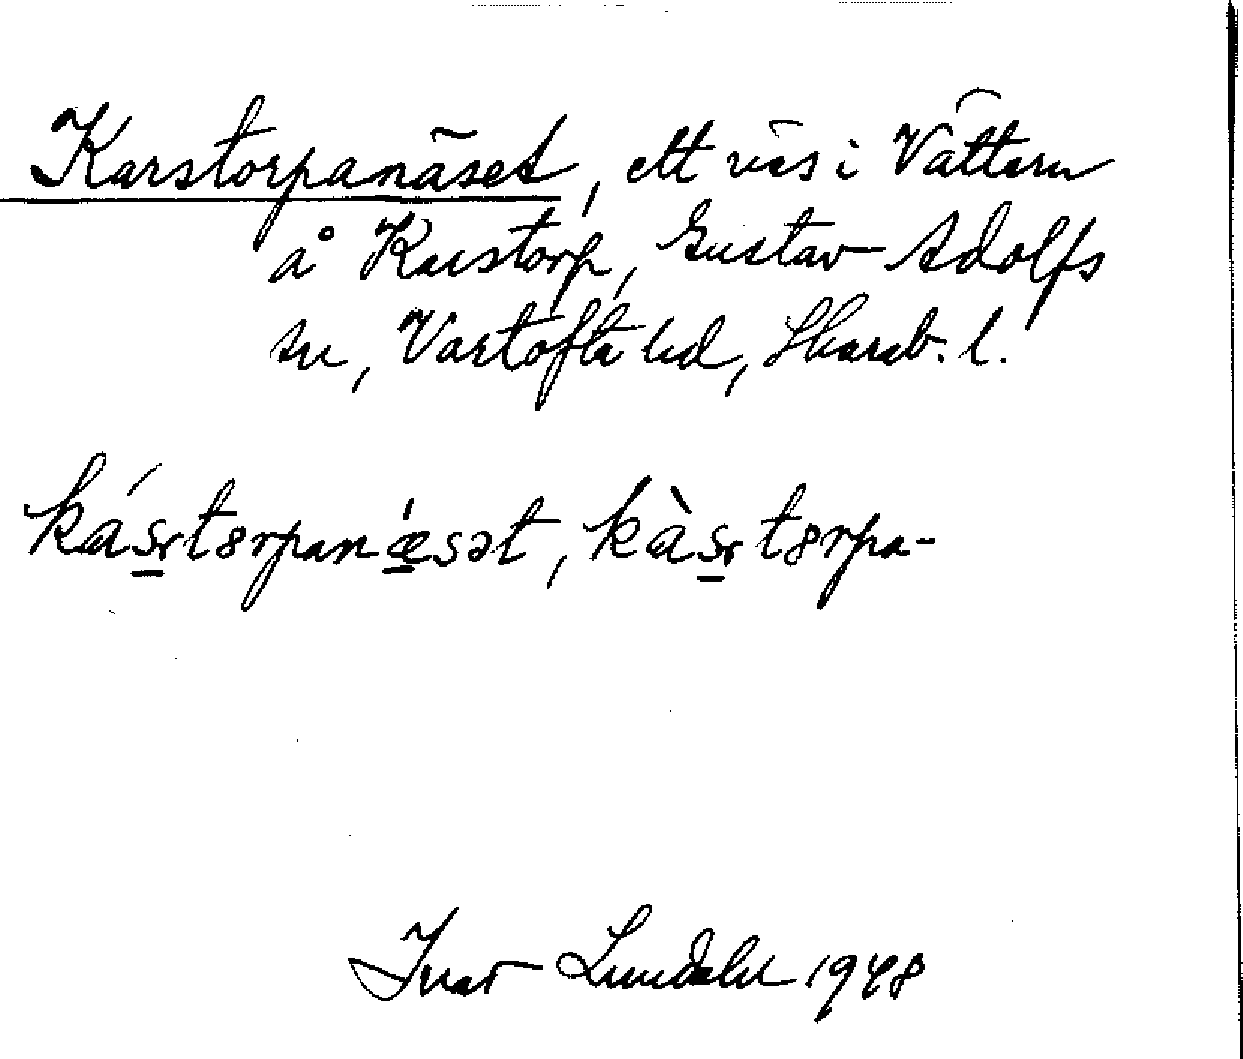 Karstorpanäset, ett näs i Vättern
å Karstorp, Gustav Adolfs
sn, Vartofta hd, Skarab. l.
kás̱rtɜrpanǽsət, kàs̱rtɜrpa-
Ivar Lundahl 1948